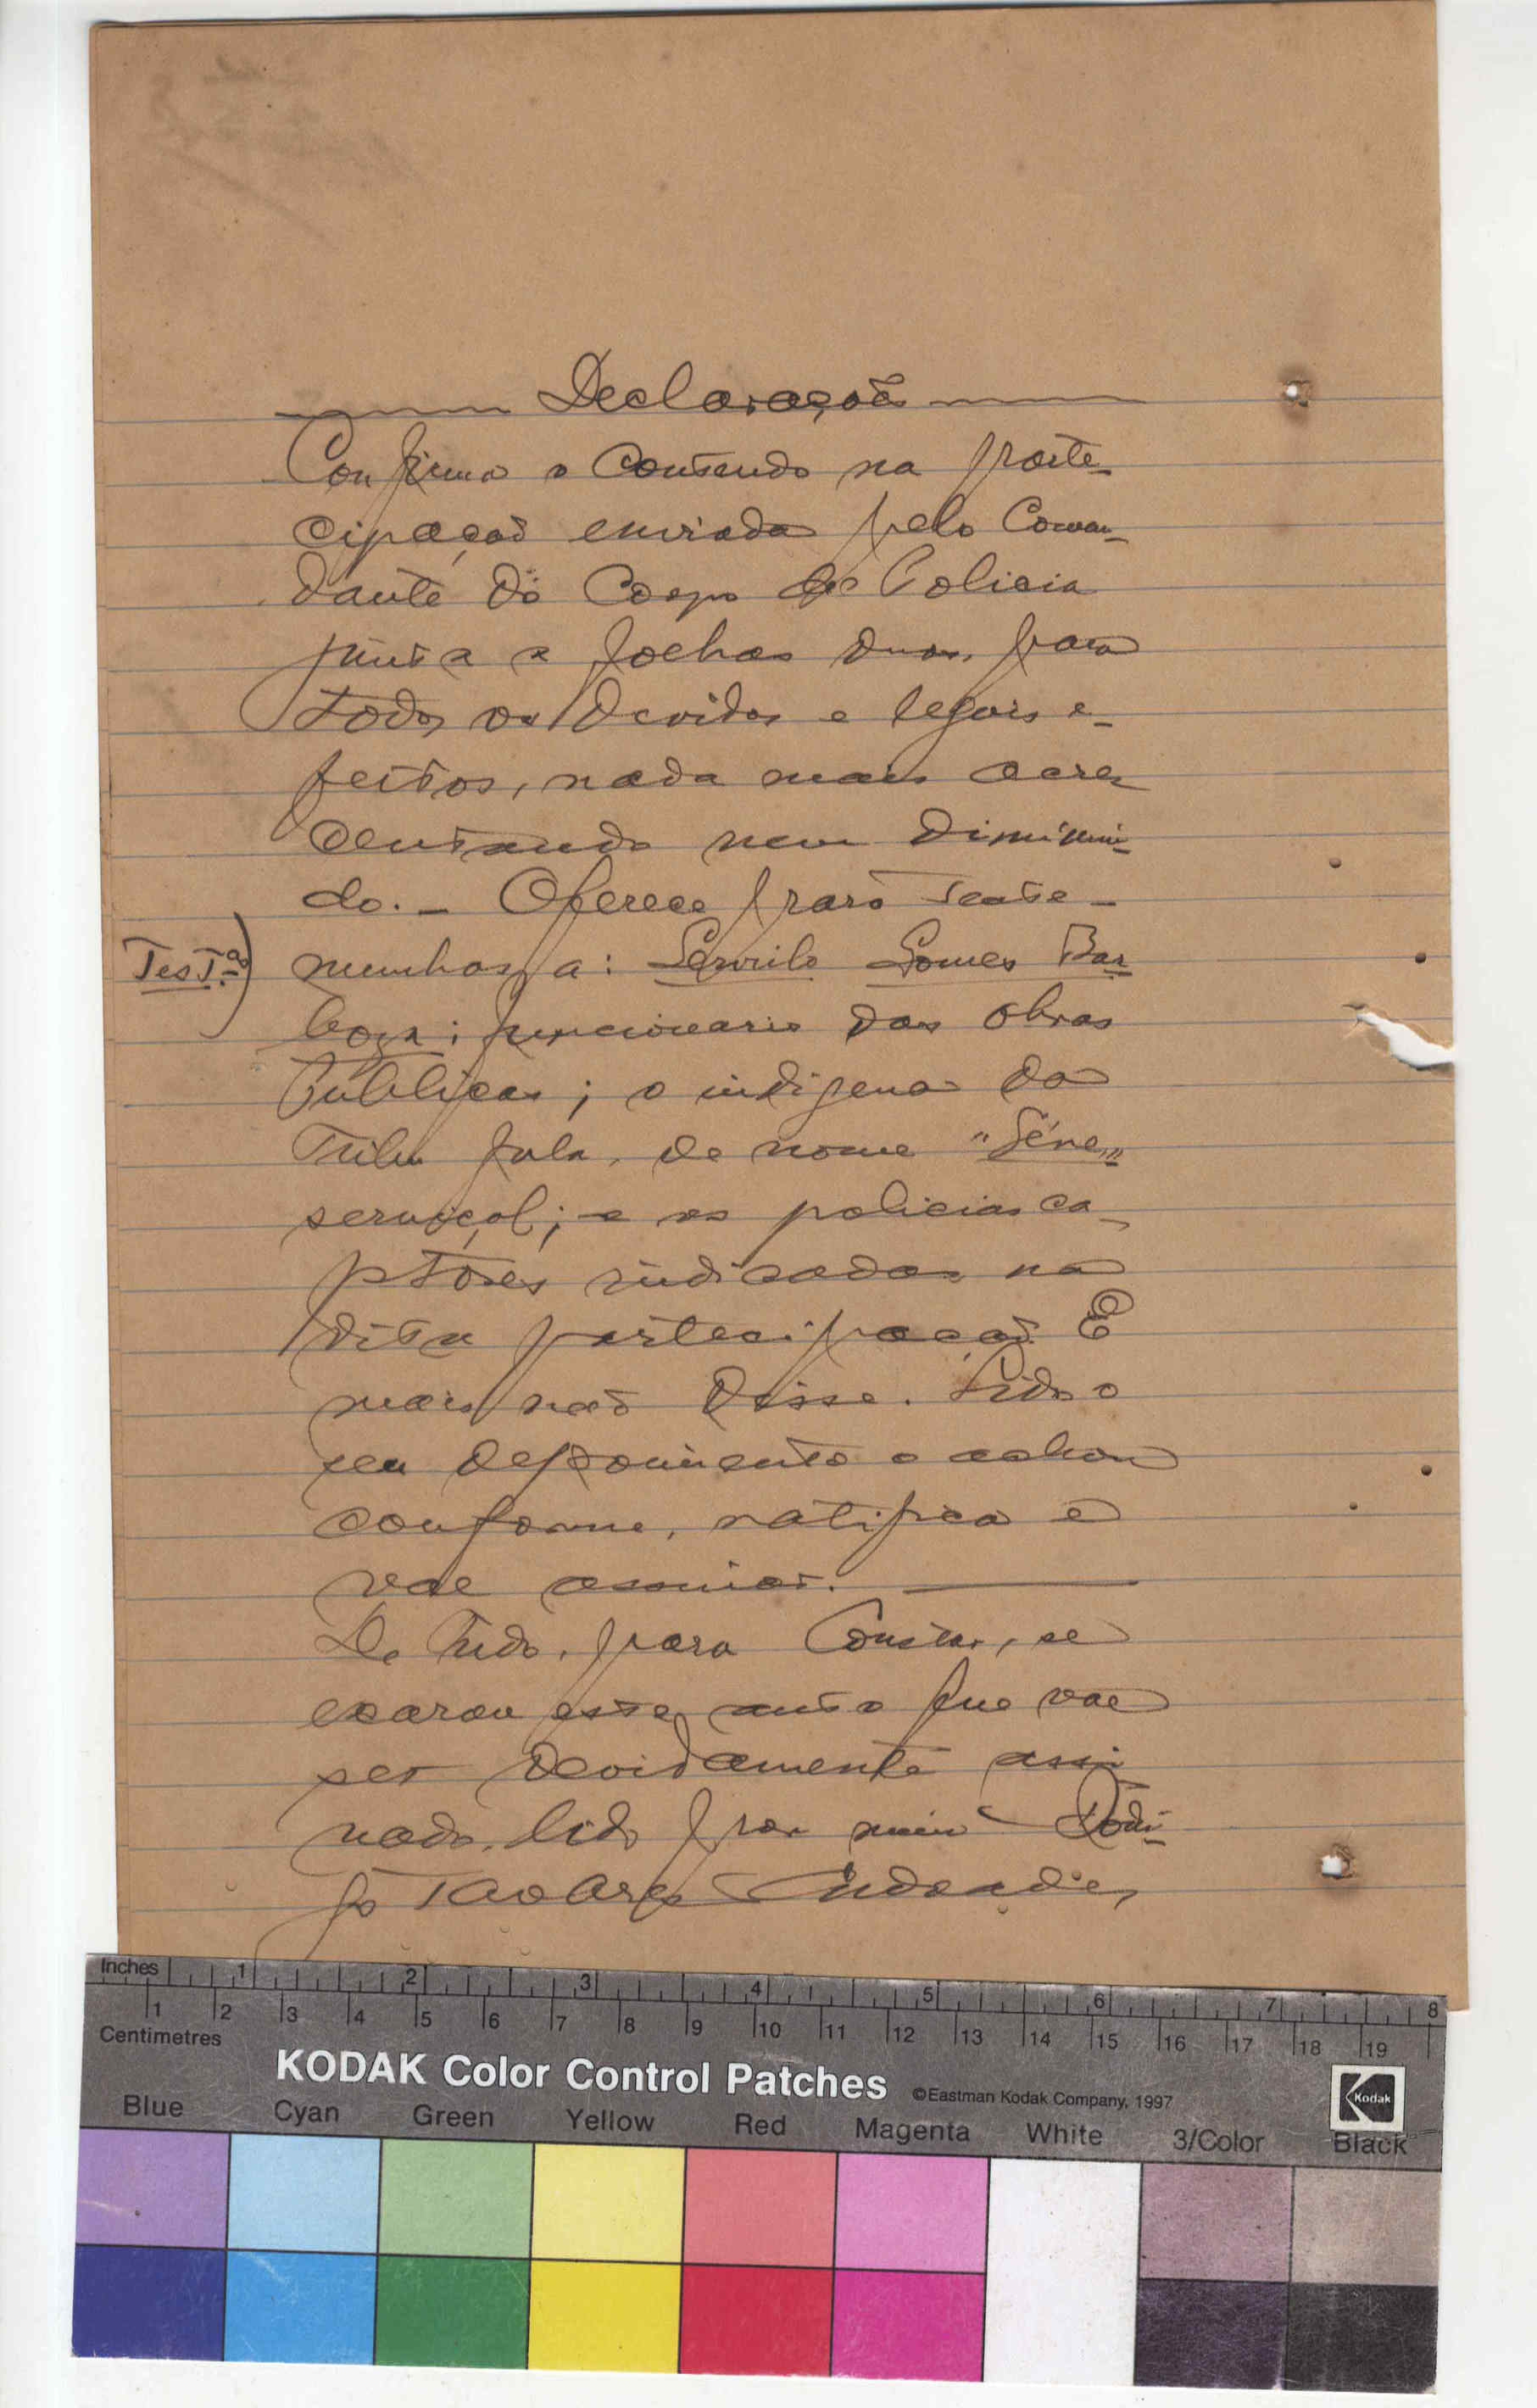 Declaração
Confirma o contendo na parte-
cipação enviada pelo Coman-
dante do Corpo de Policia
junta a folhas duas, para
todos os devidos e legais e-
feitos, nada mais acres
centando nem diminuin-
do. - Oferece para teste-
Test.as) munhas a: Servilo Gomes Bar
boza; funcionario das Obras
Públicas; o indigena da
Tribu fula, de nome "Séne,,
serviçal; e os policias ca-
ptores indicados na
dita partecipação. E
mais não disse. Lido o
seu depoimento o achou
conforme, ratifica e
vae assinar.
De tudo, para constar, se
exarou este auto que vae
ser devidamente assi
nado, lido por mim
Tavares Andrade,
Inches 1 2 3 4 5 6 7 8
Centimetres 1 2 3 4 5 6 7 8 9 10 11 12 13 14 15 16 17 18 19
KODAK Color Control Patches ©Eastman Kodak Company, 1997 Kodak
Blue Cyan Green Yellow Red Magenta White 3/Color Black